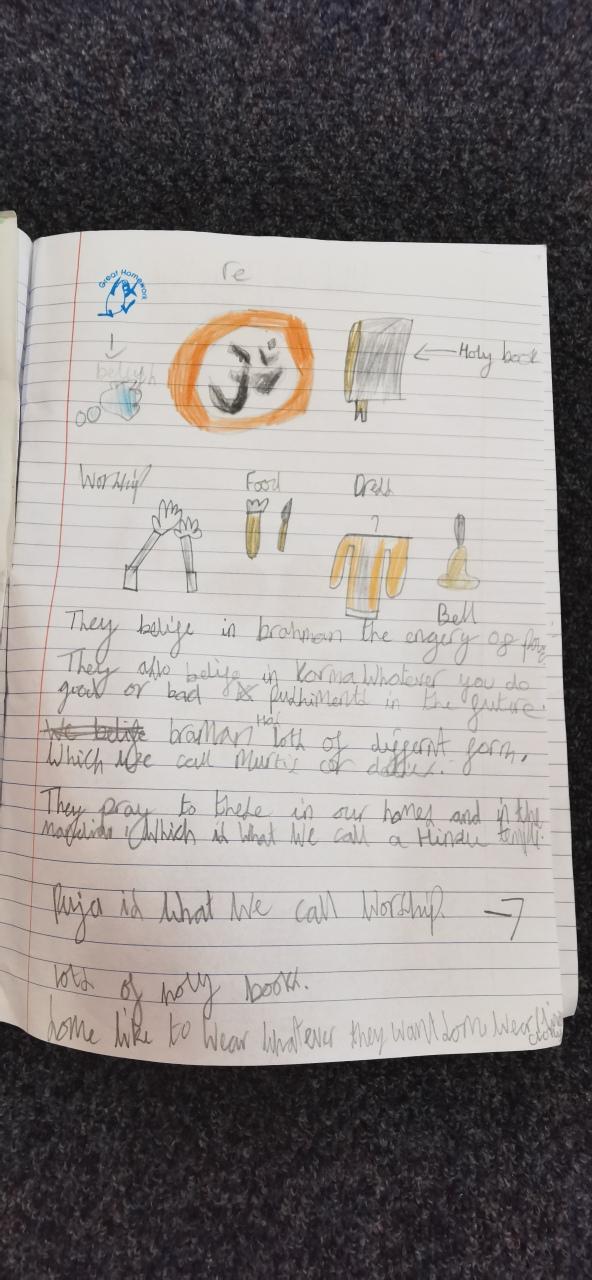 re
Great Homework
Holy book
Worship
Food
Dress
?
Bell
They belife in brahman the engery of
They also belife in Karma Whatever you do
good or bad is pudhiments in the future.
We belife braman has lots of differnt form,
Which we call Murtis or
They pray to these in our homes and in the
Which is what We call a Hindu
Puja is What We call Worship.
lots of holy books.
Some like to wear whatever they want some wear